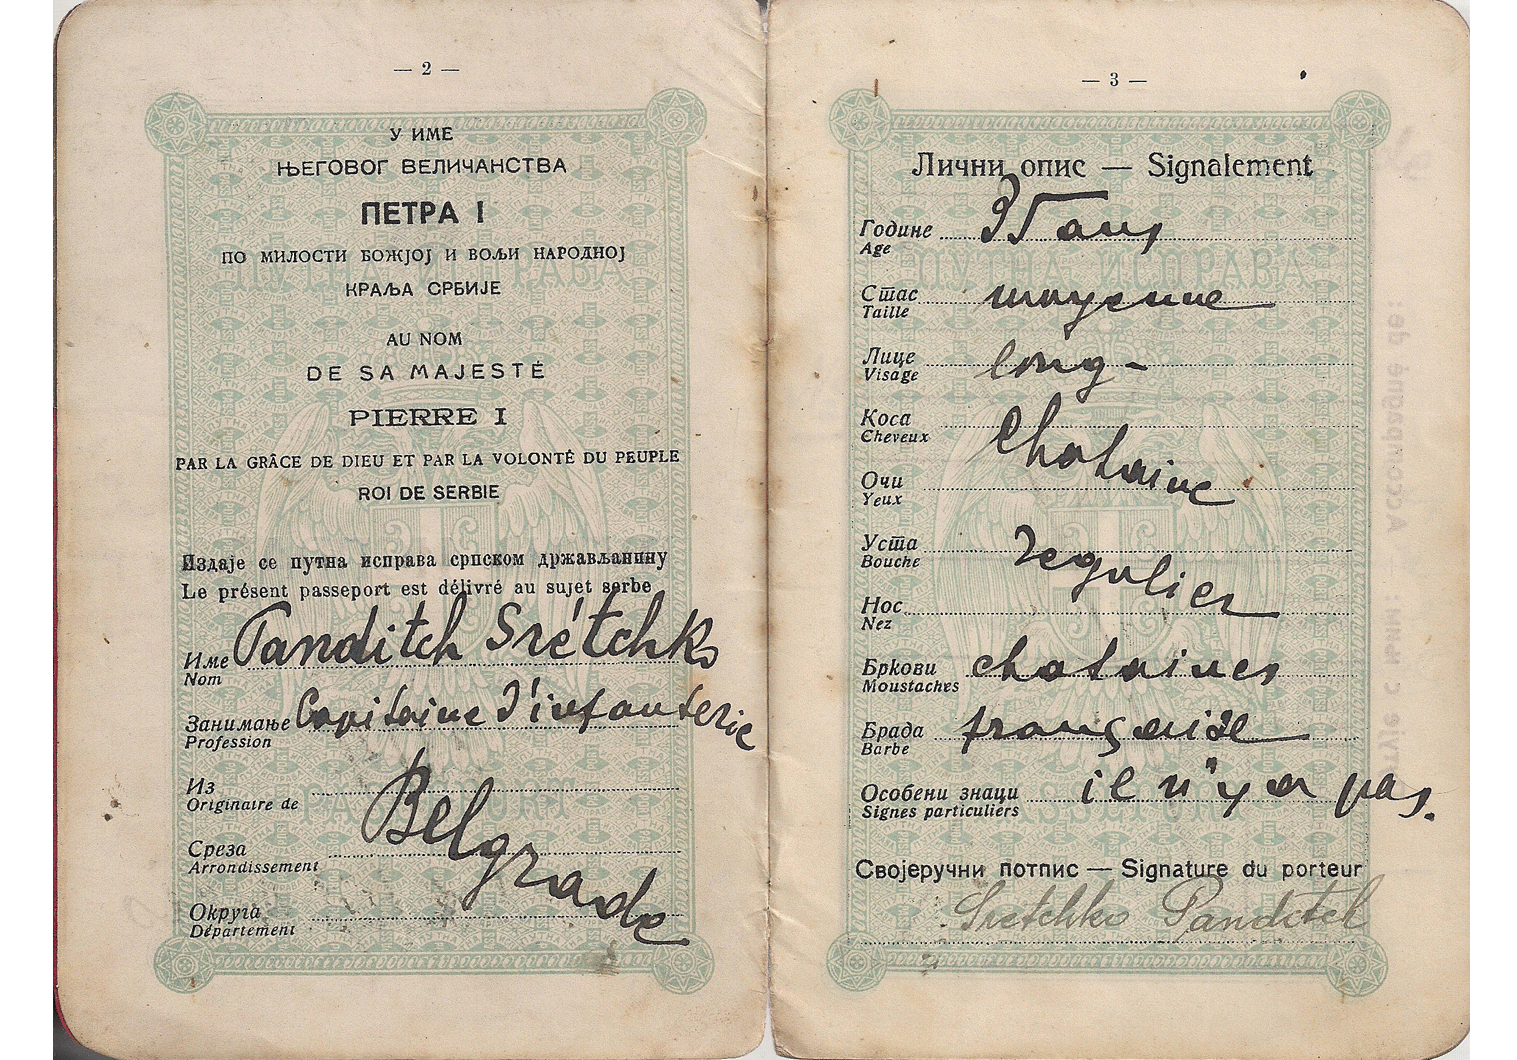 — 2 —
У ИМЕ
ЊЕГОВОГ ВЕЛИЧАНСТВА
ПЕТРА I
ПО МИЛОСТИ БОЖЈОЈ И ВОЉИ НАРОДНОЈ
КРАЉА СРБИЈЕ
AU NOM
DE SA MAJESTÉ
PIERRE I
PAR LA GRÂCE DE DIEU ET PAR LA VOLONTÉ DU PEUPLE
ROI DE SERBIE
Издаје се путна исправа српском држављанину
Le présent passeport est délivré au sujet serbe
Име Panditch Srétchko
Nom
Занимање Capitaine d'infanterie
Profession
Из
Originaire de
Belgrade
Среза
Arrondissement
Округа
Département
— 3 —
Лични опис — Signalement
ПУТНА ИСПРАВА
Године ans
Age
Стас moyenne
Taille
Лице long-
Visage
Коса
Cheveux
Chataine
Очи
Yeux
Уста
Bouche
regulier
Нос
Nez
Бркови chataines
Moustaches
Брада française
Barbe
Особени знаци il n'y a pas.
Signes particuliers
Својеручни потпис — Signature du porteur
Sretchko Panditch